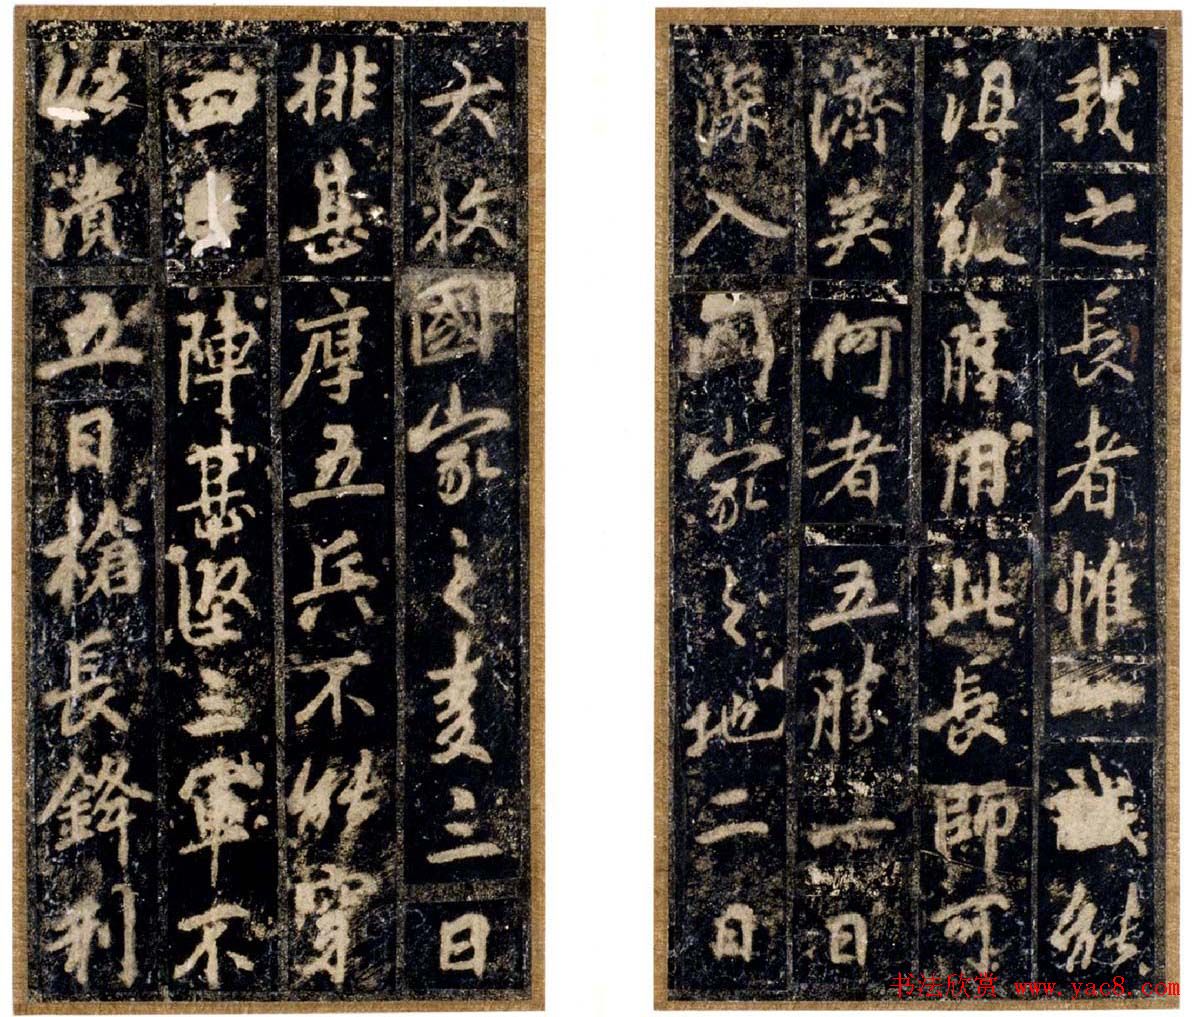 我之長者惟一能
沮彼勝用此長師可
濟矣何者五勝一曰
深入國家之地二曰
大收國家之麦三曰
排甚厚五兵不能穿
四曰陣甚堅三軍不
能潰五曰槍長鋒利
书法欣赏 www.yac8.com